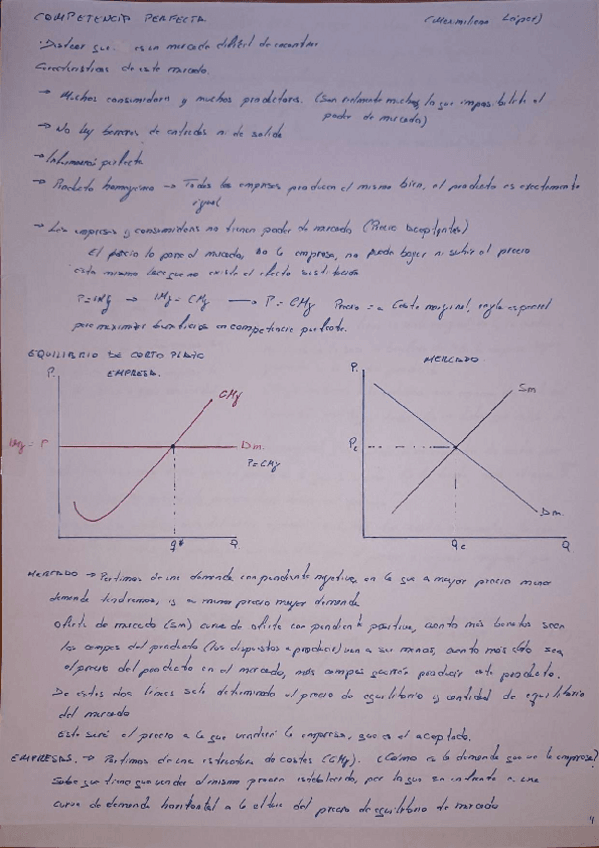 COMPETENCIA PERFECTA. (Maximiliano López)
Destacar que es un mercado difícil de encontrar
Características de este mercado.
→ Muchos consumidores y muchos productores. (Son realmente muchos, lo que imposibilita el
poder de mercado)
→ No hay barreras de entrada ni de salida
→ Información perfecta
→ Producto homogéneo → Todas las empresas producen el mismo bien, el producto es exactamente
igual
→ Las empresas y consumidores no tienen poder de mercado (Precio aceptantes)
El precio lo pone el mercado, no la empresa, no puede bajar ni subir el precio
esto mismo hace que no exista el efecto sustitución
P = IMg → IMg = CMg → P = CMg Precio = a Coste marginal, regla especial
para maximizar beneficios en competencia perfecta.
EQUILIBRIO DE CORTO PLAZO
EMPRESA. MERCADO.
P. CMg P. Sm
IMg = P Dm. Pc
P = CMg
Dm.
q* Q. Qc Q
MERCADO → Partimos de una demanda con pendiente negativa, en la que a mayor precio menor
demanda tendremos, y a menor precio mayor demanda
Oferta de mercado (Sm) curva de oferta con pendiente positiva, cuanto más baratos sean
los del producto (los dispuestos a producir) van a ser menos, cuanto más alto sea
el precio del producto en el mercado, más querrán producir este producto.
De estas dos líneas sale determinado el precio de equilibrio y cantidad de equilibrio
del mercado
Este será el precio a lo que venderá la empresa, que es el aceptado.
EMPRESAS. → Partimos de una estructura de costes (CMg). (Cómo es la demanda que ve la empresa?
Sabe que tiene que vender al mismo precio establecido, por lo que se enfrenta a una
curva de demanda horizontal a la altura del precio de equilibrio de mercado